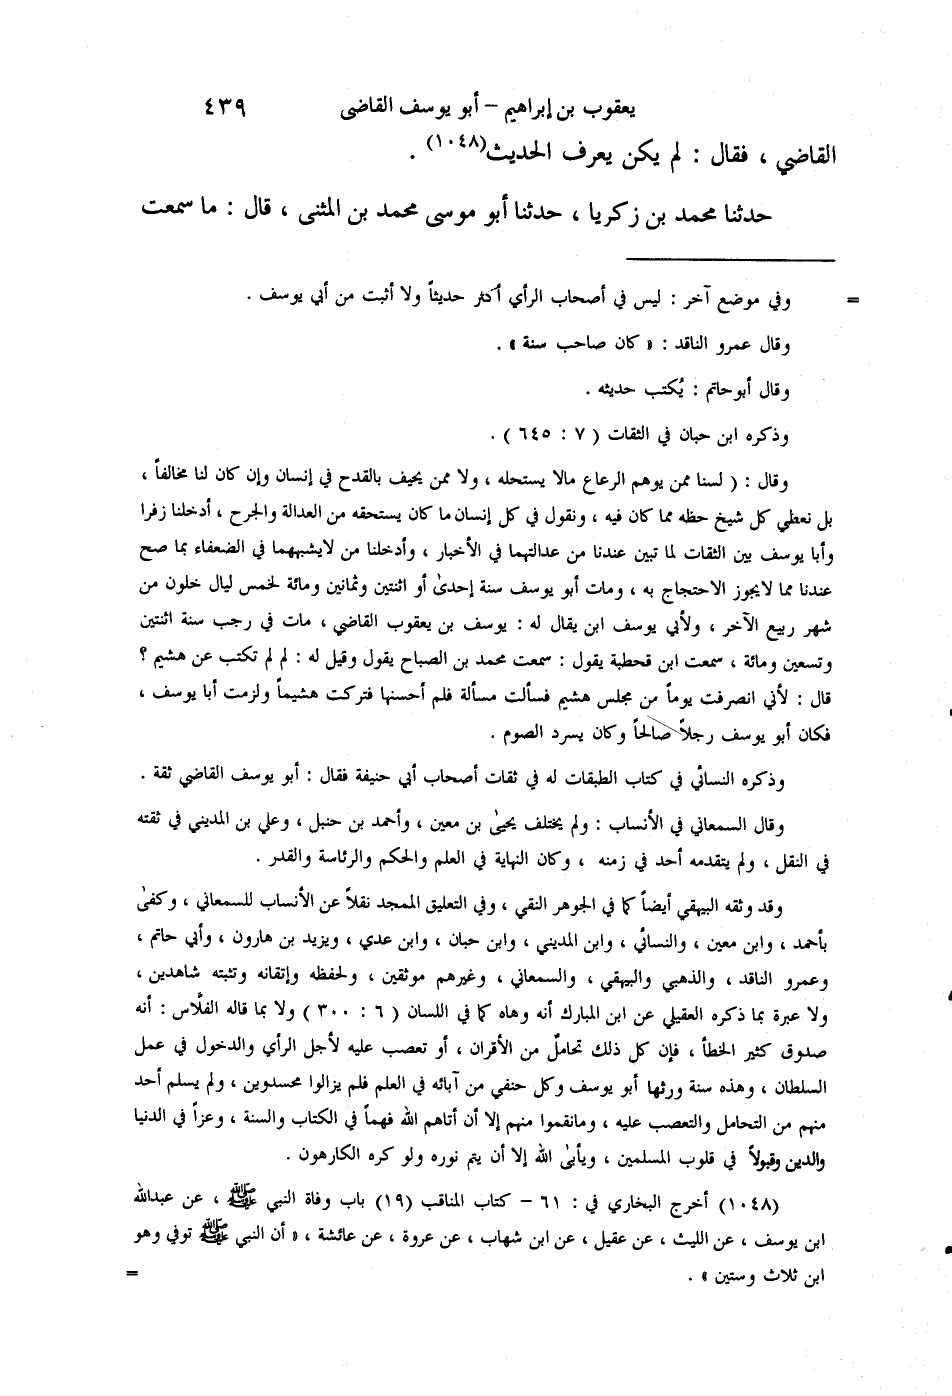 يعقوب بن إبراهيم – أبو يوسف القاضي ٤٣٩
القاضي ، فقال : لم يكن يعرف الحديث(١٠٤٨) .
حدثنا محمد بن زكريا ، حدثنا أبو موسى محمد بن المثنى ، قال : ما سمعت
= وفي موضع آخر : ليس في أصحاب الرأي أكثر حديثاً ولا أثبت من أبي يوسف .
وقال عمرو الناقد : « كان صاحب سنة » .
وقال أبوحاتم : يُكتب حديثه .
وذكره ابن حبان في الثقات ( ٧ : ٦٤٥ ) .
وقال : ( لسنا ممن يوهم الرعاع مالا يستحله ، ولا ممن يحيف بالقدح في إنسان وإن كان لنا مخالفاً ،
بل نعطي كل شيخ حظه مما كان فيه ، ونقول في كل إنسان ما كان يستحقه من العدالة والجرح ، أدخلنا زفرا
وأبا يوسف بين الثقات لما تبين عندنا من عدالتهما في الأخبار ، وأدخلنا من لايشبههما في الضعفاء بما صح
عندنا مما لايجوز الاحتجاج به ، ومات أبو يوسف سنة إحدىٰ أو اثنتين وثمانين ومائة لخمس ليال خلون من
شهر ربيع الآخر ، ولأبي يوسف ابن يقال له : يوسف بن يعقوب القاضي ، مات في رجب سنة اثنتين
وتسعين ومائة ، سمعت ابن قحطبة يقول : سمعت محمد بن الصباح يقول وقيل له : لم لم تكتب عن هشيم ؟
قال : لأني انصرفت يوماً من مجلس هشيم فسألت مسألة فلم أحسنها فتركت هشيماً ولزمت أبا يوسف ،
فكان أبو يوسف رجلاً صالحاً وكان يسرد الصوم .
وذكره النسائي في كتاب الطبقات له في ثقات أصحاب أبي حنيفة فقال : أبو يوسف القاضي ثقة .
وقال السمعاني في الأنساب : ولم يختلف يحيىٰ بن معين ، وأحمد بن حنبل ، وعلي بن المديني في ثقته
في النقل ، ولم يتقدمه أحد في زمنه ، وكان النهاية في العلم والحكم والرئاسة والقدر .
وقد وثقه البيهقي أيضاً كما في الجوهر النقي ، وفي التعليق الممجد نقلاً عن الأنساب للسمعاني ، وكفىٰ
بأحمد ، وابن معين ، والنسائي ، وابن المديني ، وابن حبان ، وابن عدي ، ويزيد بن هارون ، وأبي حاتم ،
وعمرو الناقد ، والذهبي والبيهقي ، والسمعاني ، وغيرهم موثقين ، ولحفظه وإتقانه وتثبته شاهدين ،
ولا عبرة بما ذكره العقيلي عن ابن المبارك أنه وهاه كما في اللسان ( ٦ : ٣٠٠ ) ولا بما قاله الفلَّاس : أنه
صدوق كثير الخطأ ، فإن كل ذلك تحاملٌ من الأقران ، أو تعصب عليه لأجل الرأي والدخول في عمل
السلطان ، وهذه سنة ورثها أبو يوسف وكل حنفي من آبائه في العلم فلم يزالوا محسدوين ، ولم يسلم أحد
منهم من التحامل والتعصب عليه ، ومانقموا منهم إلا أن أتاهم الله فهماً في الكتاب والسنة ، وعزاً في الدنيا
والدين وقبولاً في قلوب المسلمين ، ويأبىٰ الله إلا أن يتم نوره ولو كره الكارهون .
(١٠٤٨) أخرج البخاري في : ٦١ – كتاب المناقب (١٩) باب وفاة النبي ﷺ ، عن عبدالله
ابن يوسف ، عن الليث ، عن عقيل ، عن ابن شهاب ، عن عروة ، عن عائشة ، « أن النبي ﷺ توفي وهو
ابن ثلاث وستين » . =